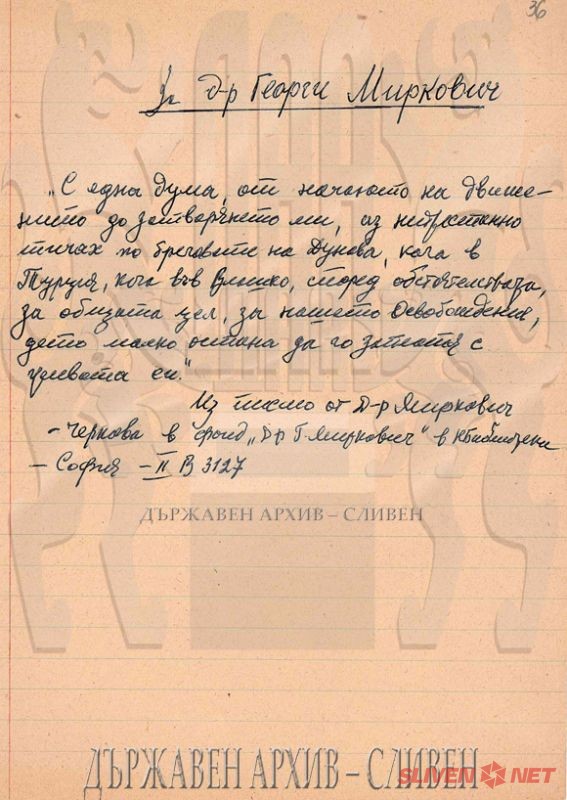 36
За Д-р Георги Миркович
„С една дума, от началото на движе-
нието до затварянето ми, аз непрестанно
тичах по бреговете на Дунава, кога в
Турция, кога във Влашко, според обстоятелствата,
за общата цел, за нашето Освобождение,
дето малко остана да го заплатя с
живота си."
Из писмо от Д-р Миркович
- Чернова в фонд „Д-р Г. Миркович" в
- София - II В 3127
ДЪРЖАВЕН АРХИВ – СЛИВЕН
ДЪРЖАВЕН АРХИВ – СЛИВЕН
SLIVEN NET